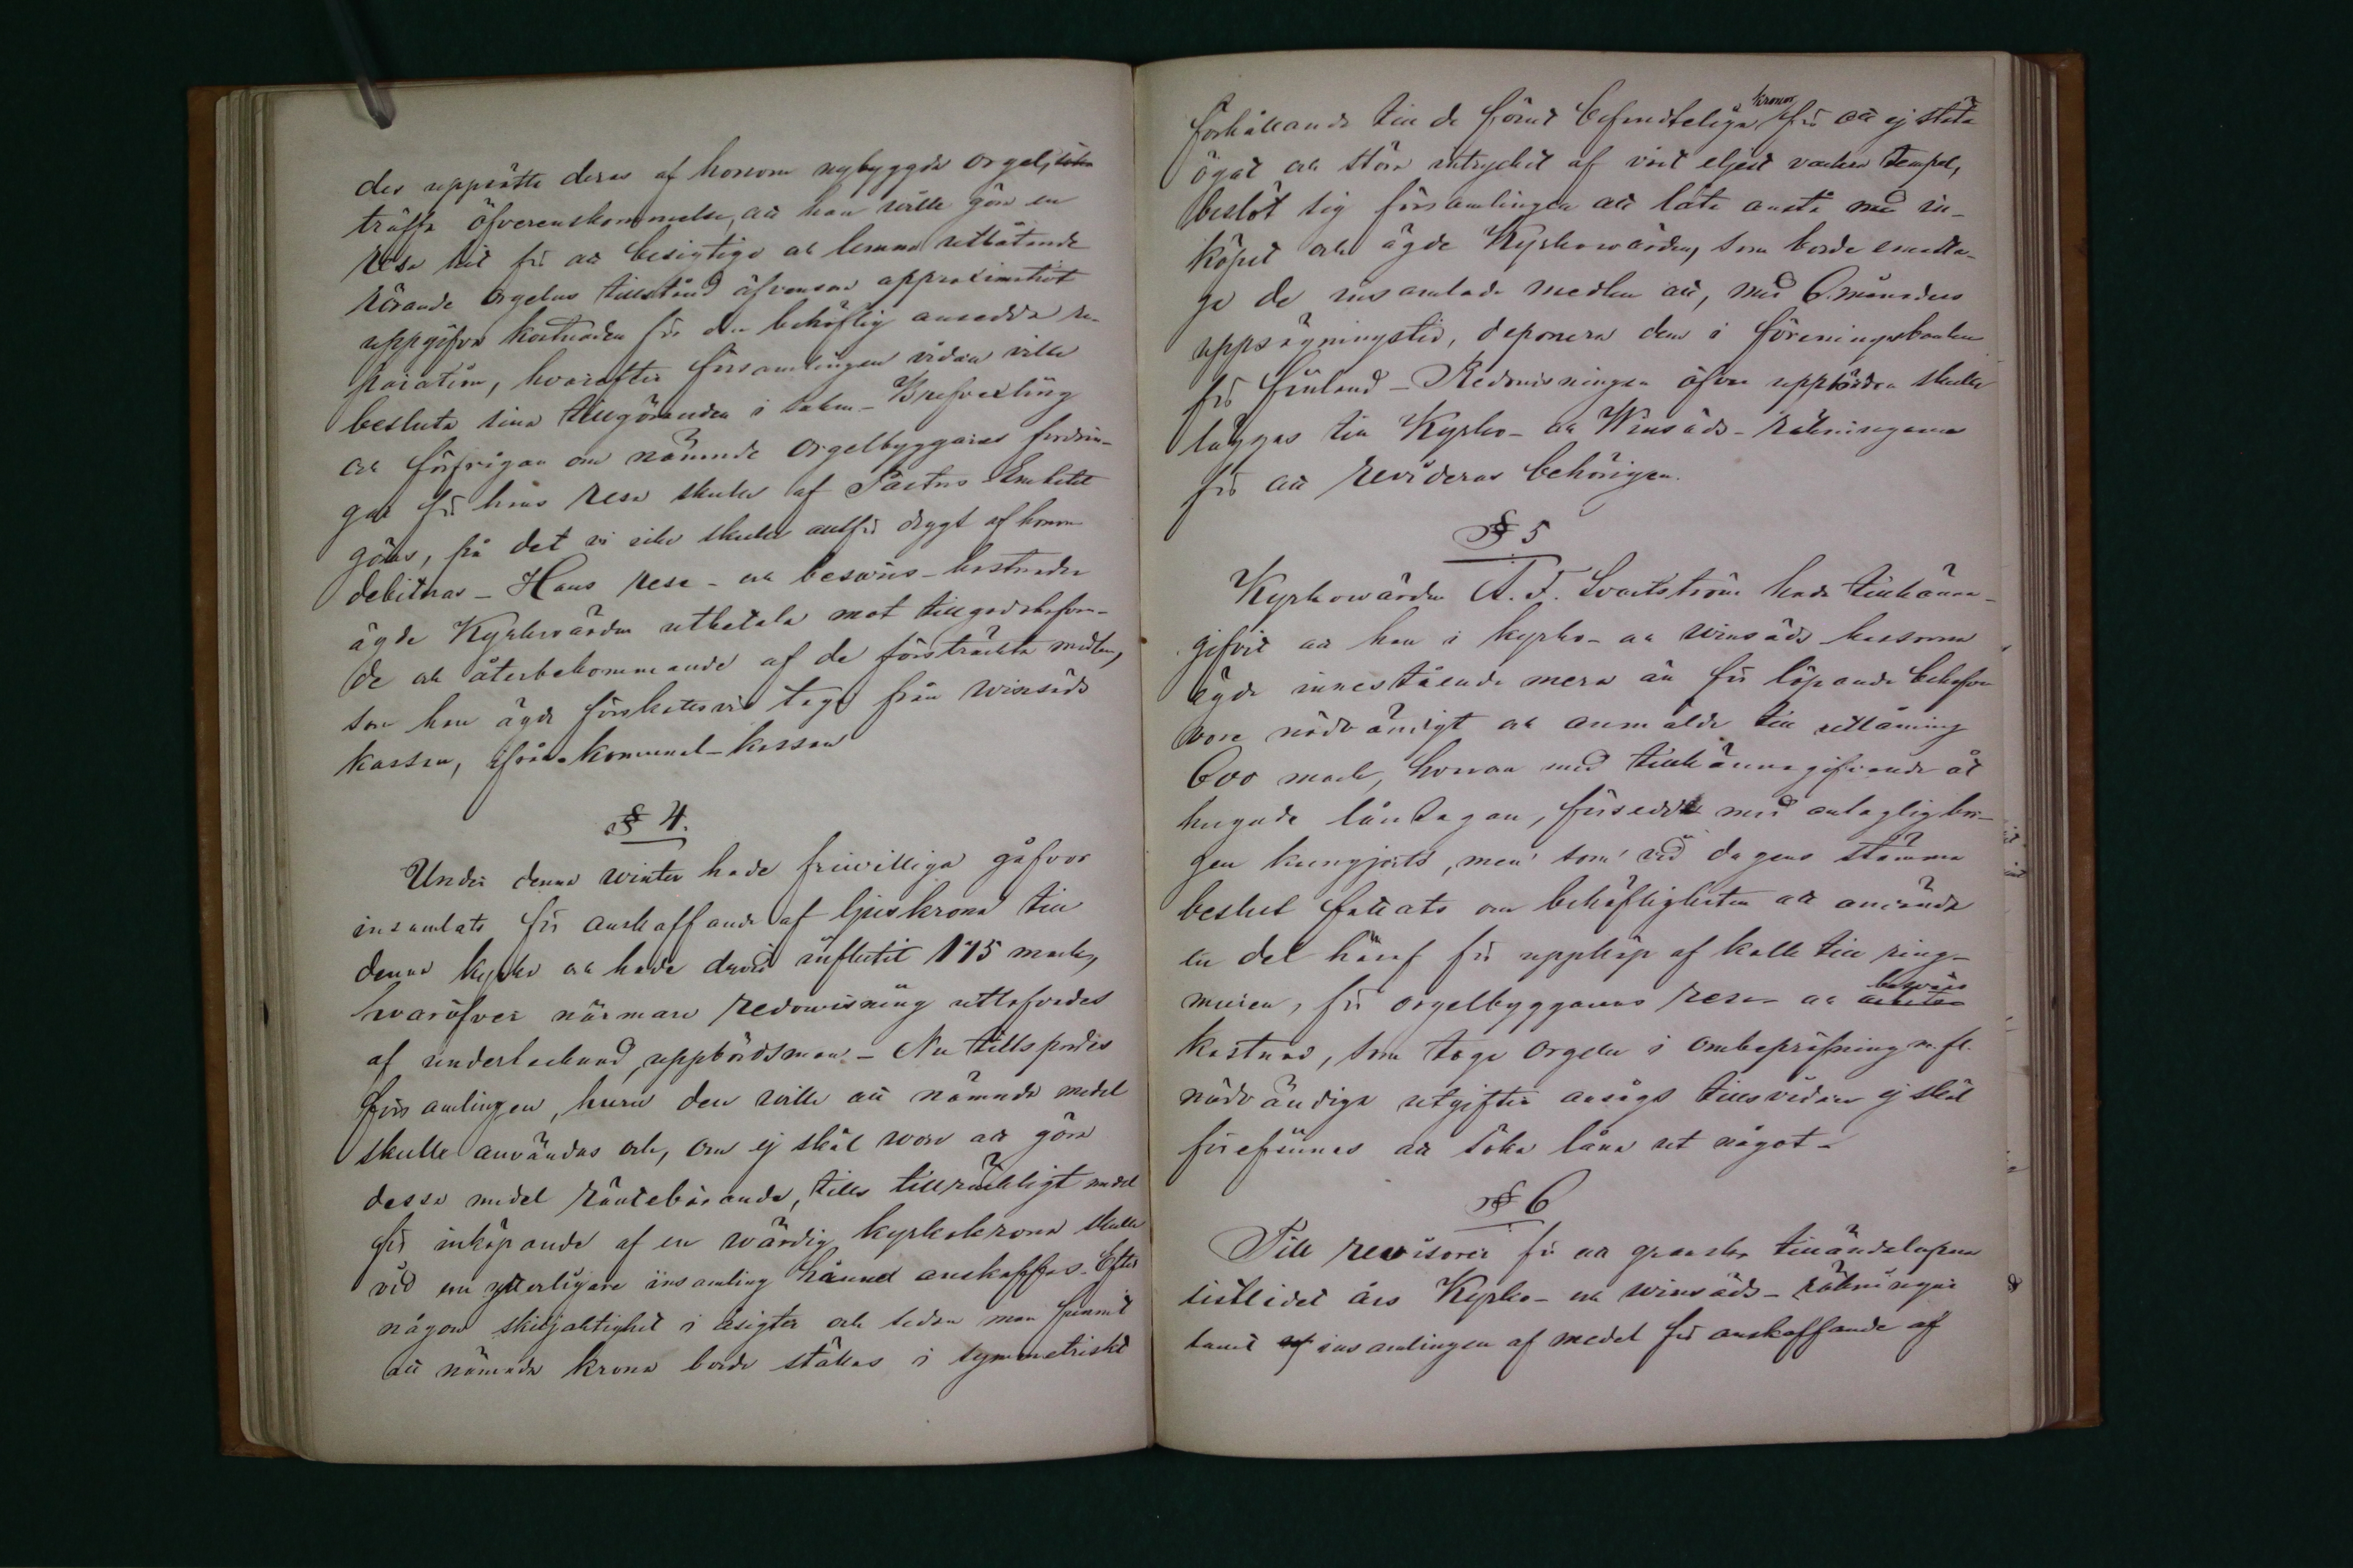 des uppsätta deras af honom nybyggda orgel,
träffa öfverenskommelse, att han wille göra en
resa hit för att besigtiga och lemna utlåtande
rörande orgelns tillstånd äfvensom approximativt
uppgifva kostnaden för den behöflig ansedda re-
paration, hvarefter församlingen vidare ville
besluta sina tillgöranden i saken – Brefvexling
och förfrågan om nämnde orgelbyggares fordrin-
gar för hans resa skulle af Pastors Embetet
göras, på det vi icke skulle alltför drygt af honom
debiteras – Hans rese- och besvärs-kostnader
ägde Kyrkowärden utbetala mot tillgodohafvan-
de och återbekommande af de försträckta medlen,
som han ägde förskottsvis taga från winsäds
kassan, ifrån kommunal-kassan
§ 4.
Under denna winter hade friwilliga gåfvor
insamlats för anskaffande af ljuskrona till
denna kyrka och hade dervid influtit 175 mark,
hvaröfver närmare redowisning uttofvades
af undertecknad, uppbördsman – Nu tillspordes
församlingen, huru den wille att nämnde medel
skulle användas och, om ej skäl wore att göra
dessa medel räntebärande, tills tillräckligt medel
för inköpande af en wärdig kyrkokrona skulle
vid en ytterligare insamling hunnit anskaffas. Efter
någon skiljaktighet i åsigter och sedan man funnit
att nämnda krona borde ställas i symmetriskt
förhållande till de förut befindteliga kronor för att ej stöta
ögat och störa intrycket af vårt eljest vackra tempel,
beslöt sig församlingen att låta anstå med in-
köpet och ägde Kyrkowärden, som borde emotta-
ga de insamlade medlen att, med 6 månaders
uppsägningstid, deponera dem i föreningsbanken
för finland – Redovisningen öfver uppbörden skulle
läggas till Kyrko- och Winsäds-räkningarna
för att revideras behörigen.
§ 5
Kyrkowärden A. F. Svartström hade tillkänna-
gifvit att han i kyrko- och winsäds kassorna
ägde innestående mera än för löpande behofven
vore nödvändigt och anmälde till utlåning
600 mark, hvarom med tillkännagifvande åt
hugade låntagare, försedda med antaglig bor-
gen kungjorts, men som vid dagens stämma
beslut fattats om behöfligheten att använda
en del häraf för uppköp af kalk till ring-
muren, för orgelbyggarens rese- och besvärs
kostnad, som toge orgeln i ombepröfning m. fl.
nödvändiga utgifter ansågs tillsvidare ej skäl
förefinnas att söka låna ut något –
§ 6
Till revisorer för att granska tilländalupna
sistlidet års Kyrko- och winsäds-räkningar
samt insamlingen af medel för anskaffande af